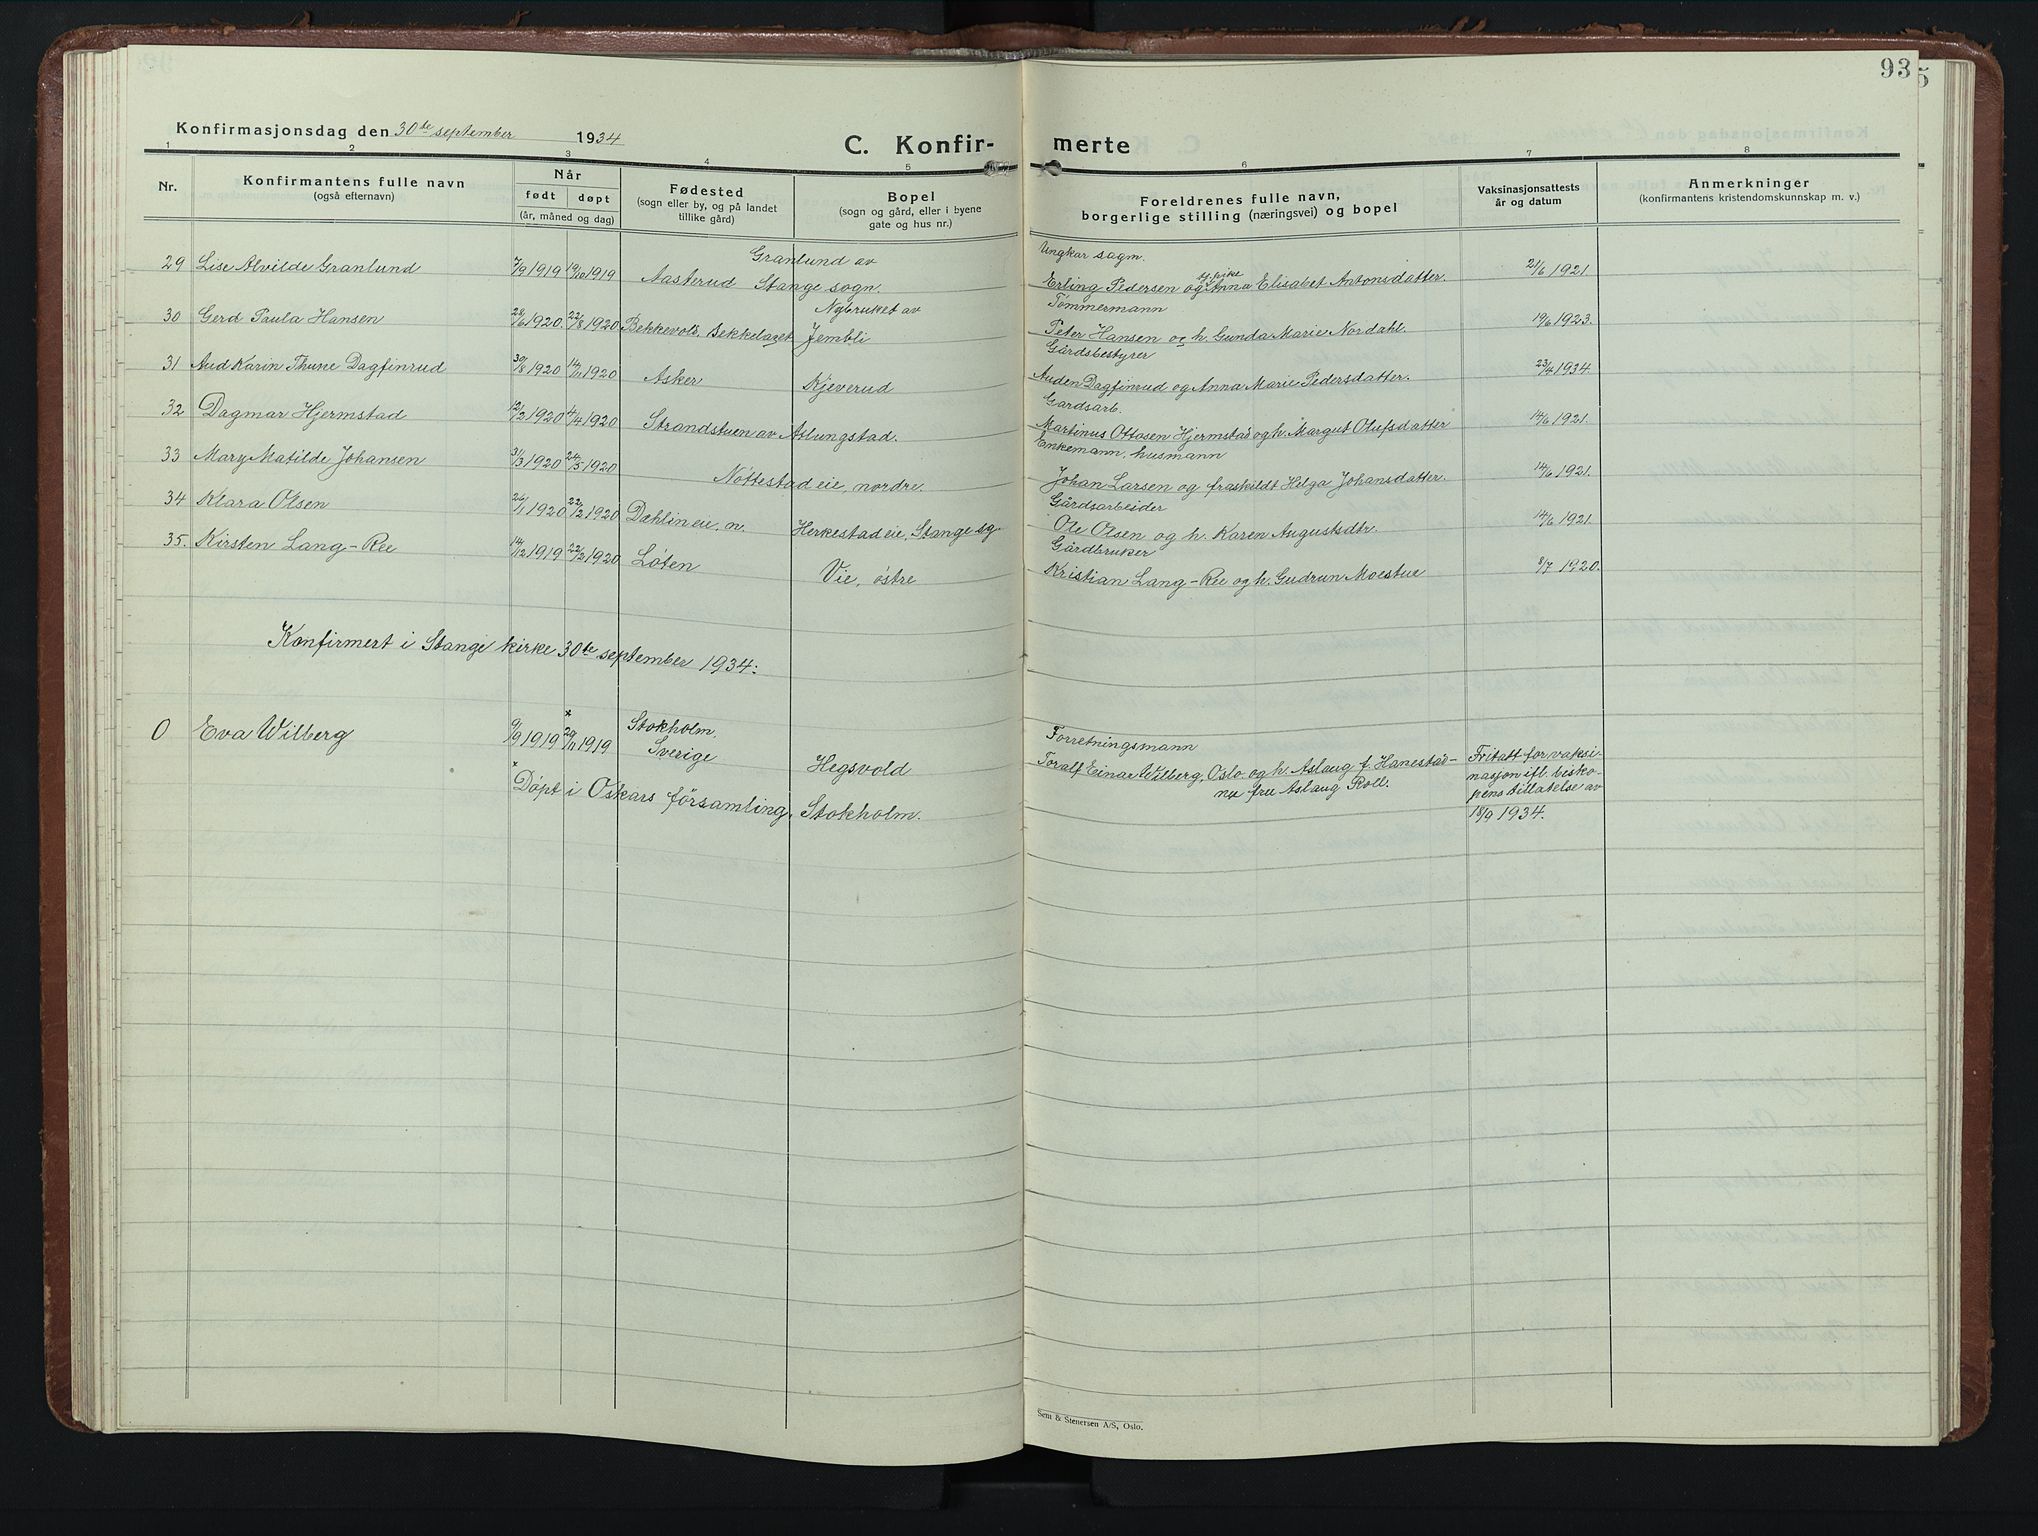 93
Konfirmasjonsdag den 30de september 1934
C. Konfir- merte
1 2 3 4 5 6 7 8
Nr.
Konfirmantens fulle navn
(også efternavn)
Når
født døpt
(år, måned og dag)
Fødested
(sogn eller by, og på landet
tillike gård)
Bopel
(sogn og gård, eller i byene
gate og hus nr.)
Foreldrenes fulle navn,
borgerlige stilling (næringsvei) og bopel
Vaksinasjonsattests
år og datum
Anmerkninger
(konfirmantens kristendomskunnskap m. v.)
Granlund av Ungkar sagm.
29 Lise Alvilde Granlund 7/9 1919 19/10 1919 Aasterud Stange sogn. Erling Pedersen og pike Anna Elisabet Antonsdatter. 21/6 1921.
Nybruket av Tømmermann
30 Gerd Paula Hansen 28/6 1920. 22/8 1920 Bekkevold, Bekkelaget Jembli Peter Hansen og h. Gunda Marie Nordahl. 19/6 1923.
Gårdsbestyrer
31 Aud Karin Thune Dagfinrud 30/8 1920 14/11 1920 Asker Kjeverud Auden Dagfinrud og Anna Marie Pedersdatter. 23/4 1934
Gardsarb.
32 Dagmar Hjermstad 12/2 1920 4/4 1920 Strandstuen av Atlungstad. Martinus Ottosen Hjermstad og h. Margut Olufsdatter 14/6 1921.
Enkemann, husmann
33 Mary Matilde Johansen 31/3 1920 24/5 1920 Nøttestad eie, nordre. Johan Larsen og fraskildt Helga Johansdatter. 14/6 1921.
Gårdsarbeider
34 Klara Olsen 26/1 1920 22/2 1920 Dæhlin eie, n. Herkestad eie, Stange sg. Ole Olsen og h. Karen Augustsdtr. 14/6 1921.
Gårdbruker
35. Kirsten Lang-Ree 14/12 1919 22/2 1920 Løten Vie, østre Kristian Lang-Ree og h. Gudrun Moestue 8/7 1920.
Konfirmert i Stange kirke 30te september 1934.
0 Eva Wilberg 9/9 1919 x 29/11 1919 Stokholm,
Sverige Hegsvold
Forretningsmann
Toralf Einar Wilberg, Oslo og h. Aslaug f. Hanestad-
nu fru Aslaug Roll.
Fritatt for vaksi-
nasjon ifl. bisko-
pens tillatelse av
18/9 1934.
x Døpt i Oskars församling, Stokholm.
Sem & Stenersen A/S, Oslo.